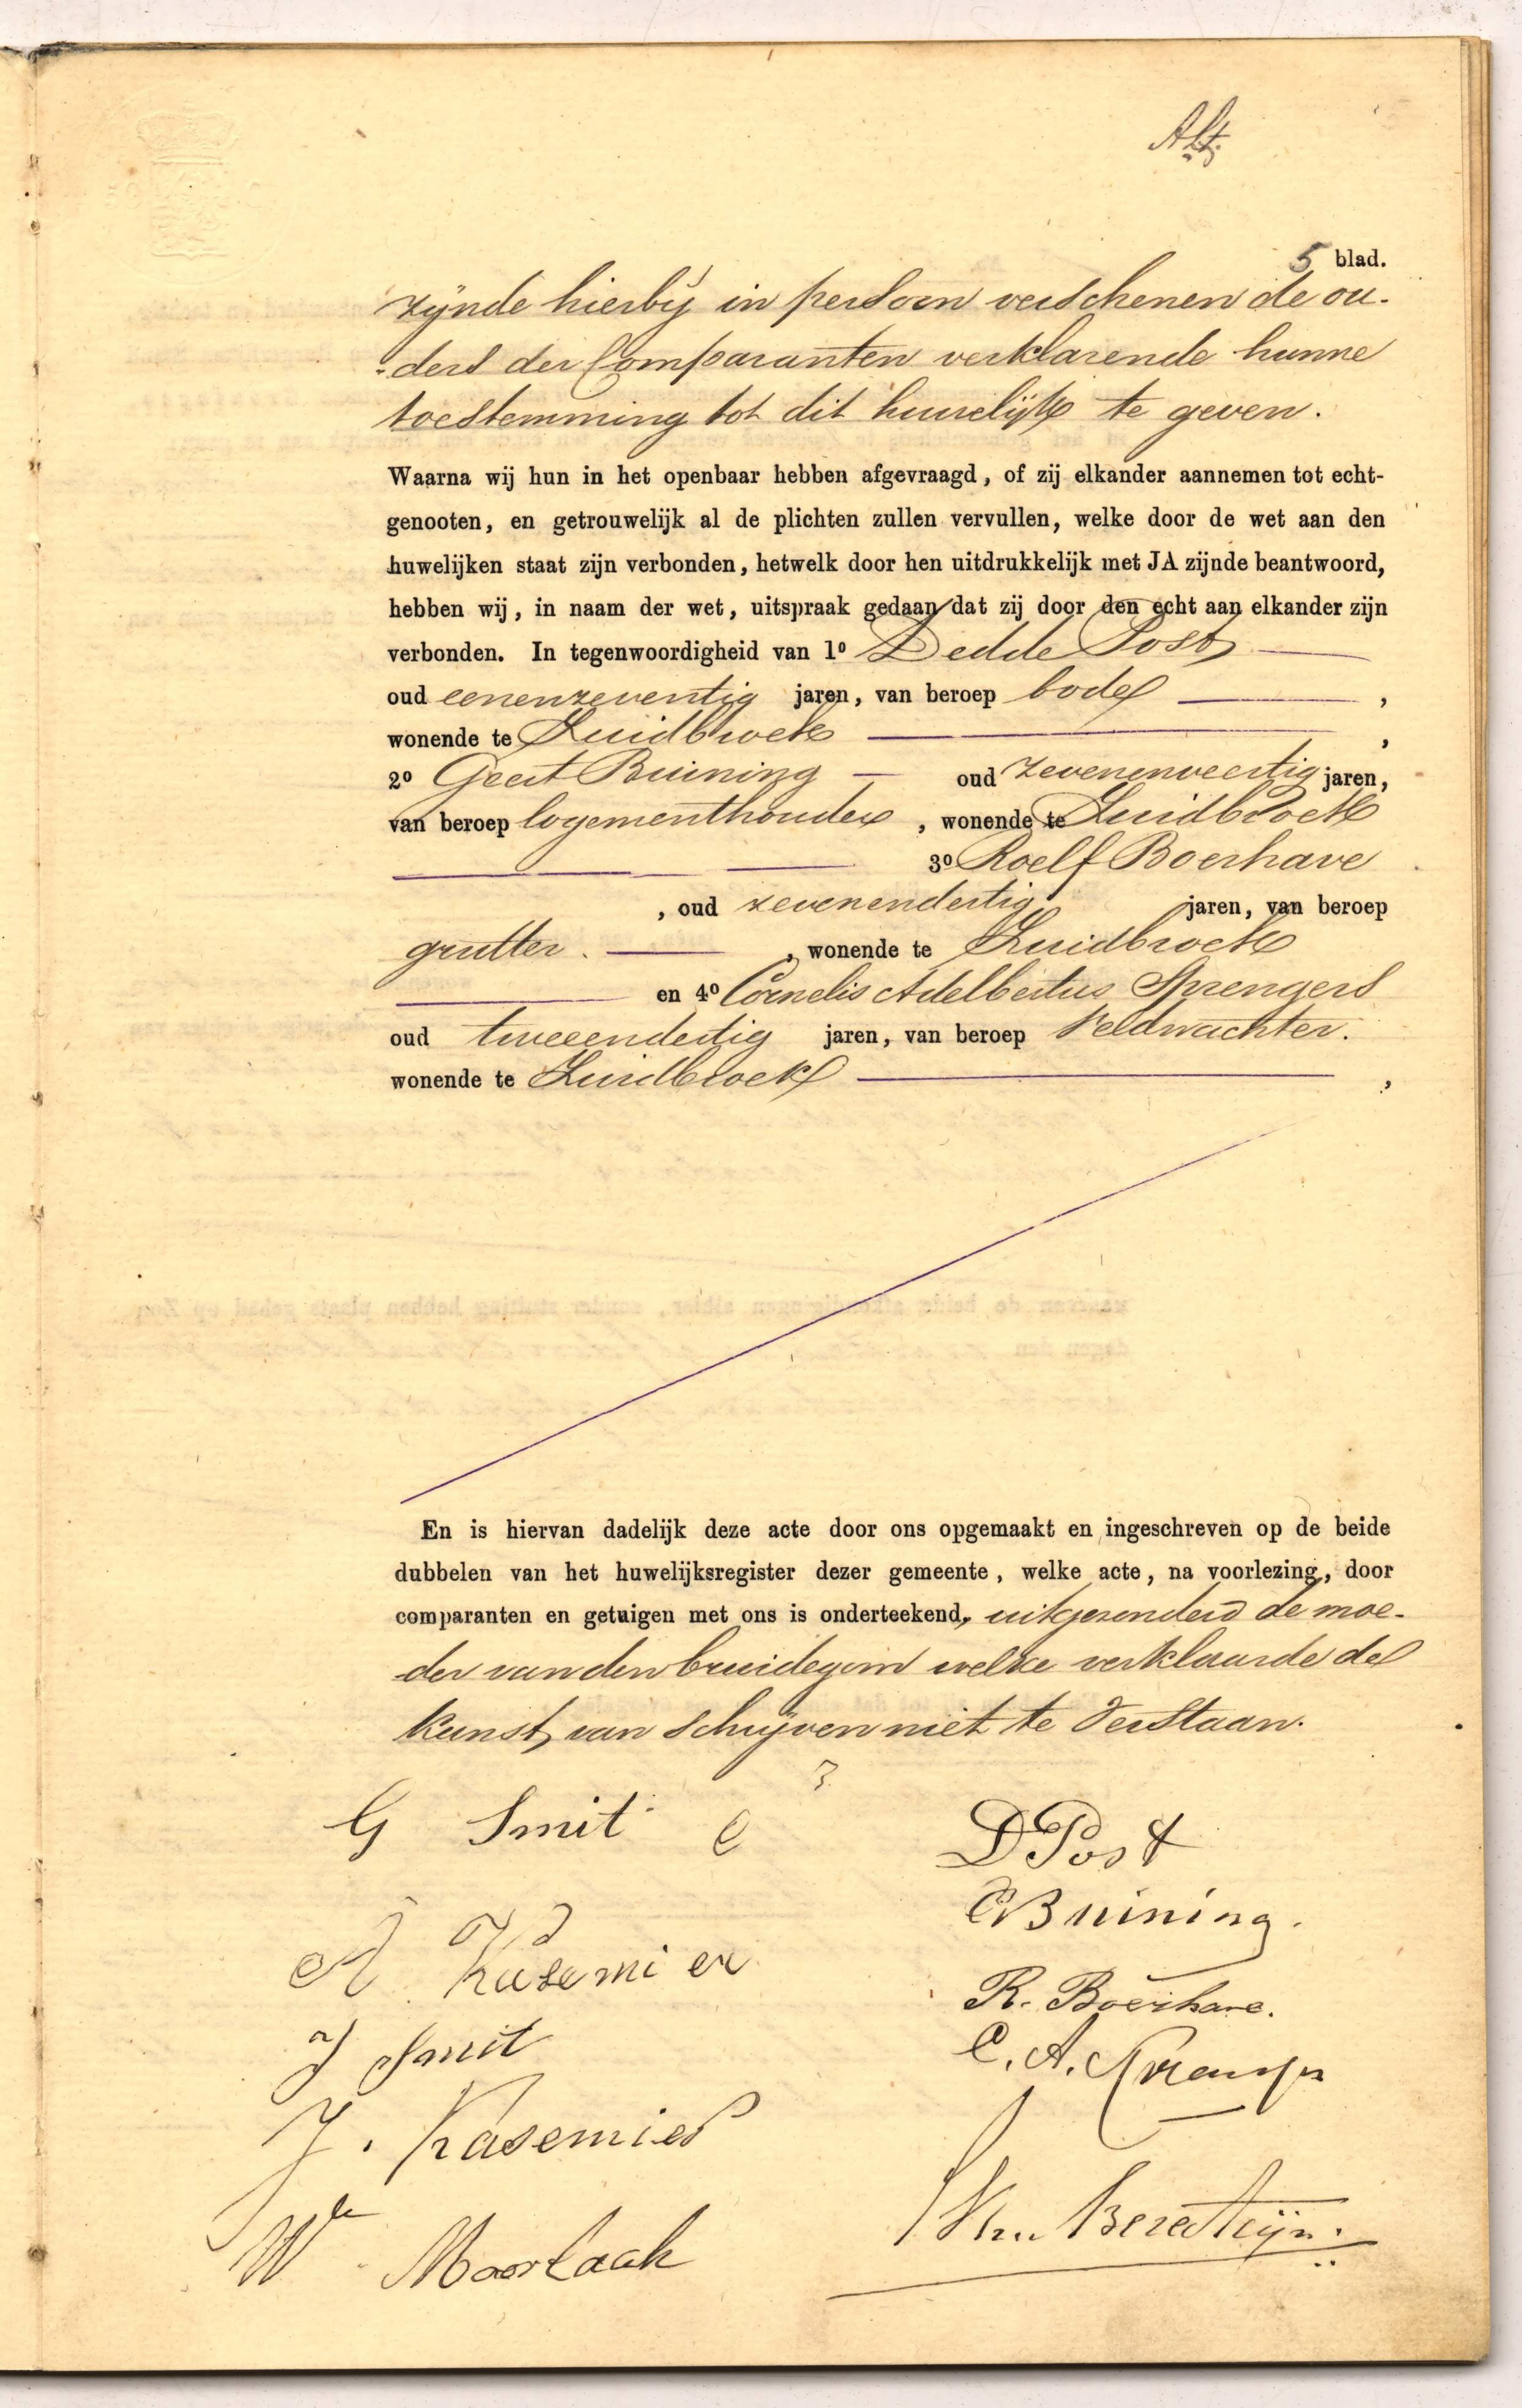 5 blad.
zijnde hierbij in persoon verschenen de ou-
"ders der Comparanten verklarende hunne
toestemming tot dit huwelijk te geven.
Waarna wij hun in het openbaar hebben afgevraagd, of zij elkander aannemen tot echt-
genooten, en getrouwelijk al de plichten zullen vervullen, welke door de wet aan den
huwelijken staat zijn verbonden, hetwelk door hen uitdrukkelijk met JA zijnde beantwoord,
hebben wij, in naam der wet, uitspraak gedaan dat zij door den echt aan elkander zijn
verbonden. In tegenwoordigheid van 1º Dedde Post
oud eenenzeventig jaren, van beroep bode ,
wonende te Zuidbroek ,
2º Geert Buining oud zevenenveertig jaren,
van beroep logementhouder , wonende te Zuidbroek
3º Roelf Boerhave
, oud zevenendertig jaren, van beroep
grutter. , wonende te Zuidbroek
en 4º Cornelis Adelbertus Sprengers
oud tweeendertig jaren, van beroep Veldwachter.
wonende te Zuidbroek ,
En is hiervan dadelijk deze acte door ons opgemaakt en ingeschreven op de beide
dubbelen van het huwelijksregister dezer gemeente, welke acte, na voorlezing, door
comparanten en getuigen met ons is onderteekend, uitgezonderd de moe-
der van den bruidegom welke verklaarde de
kunst van schrijven niet te verstaan.
G Smit
D Post
G Buining.
A Kasemier
R. Boerhave.
J Smit
C. A. Sprengers
J. Kasemier
W Moorlach